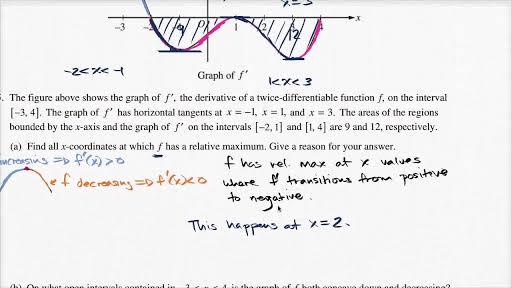 x=3
-3 -2 0 1 2 3 4 x
9
12
-2<x<-1
Graph of f′
1<x<3
. The figure above shows the graph of f′, the derivative of a twice-differentiable function f, on the interval
[−3, 4]. The graph of f′ has horizontal tangents at x = −1, x = 1, and x = 3. The areas of the regions
bounded by the x-axis and the graph of f′ on the intervals [−2, 1] and [1, 4] are 9 and 12, respectively.
(a) Find all x-coordinates at which f has a relative maximum. Give a reason for your answer.
increasing => f'(x)>0
f decreasing => f'(x)<0
f has rel. max at x values
where f' transitions from positive
to negative.
This happens at x=2.
(b) On what open intervals contained in −3 < x < 4 is the graph of f both concave down and decreasing?